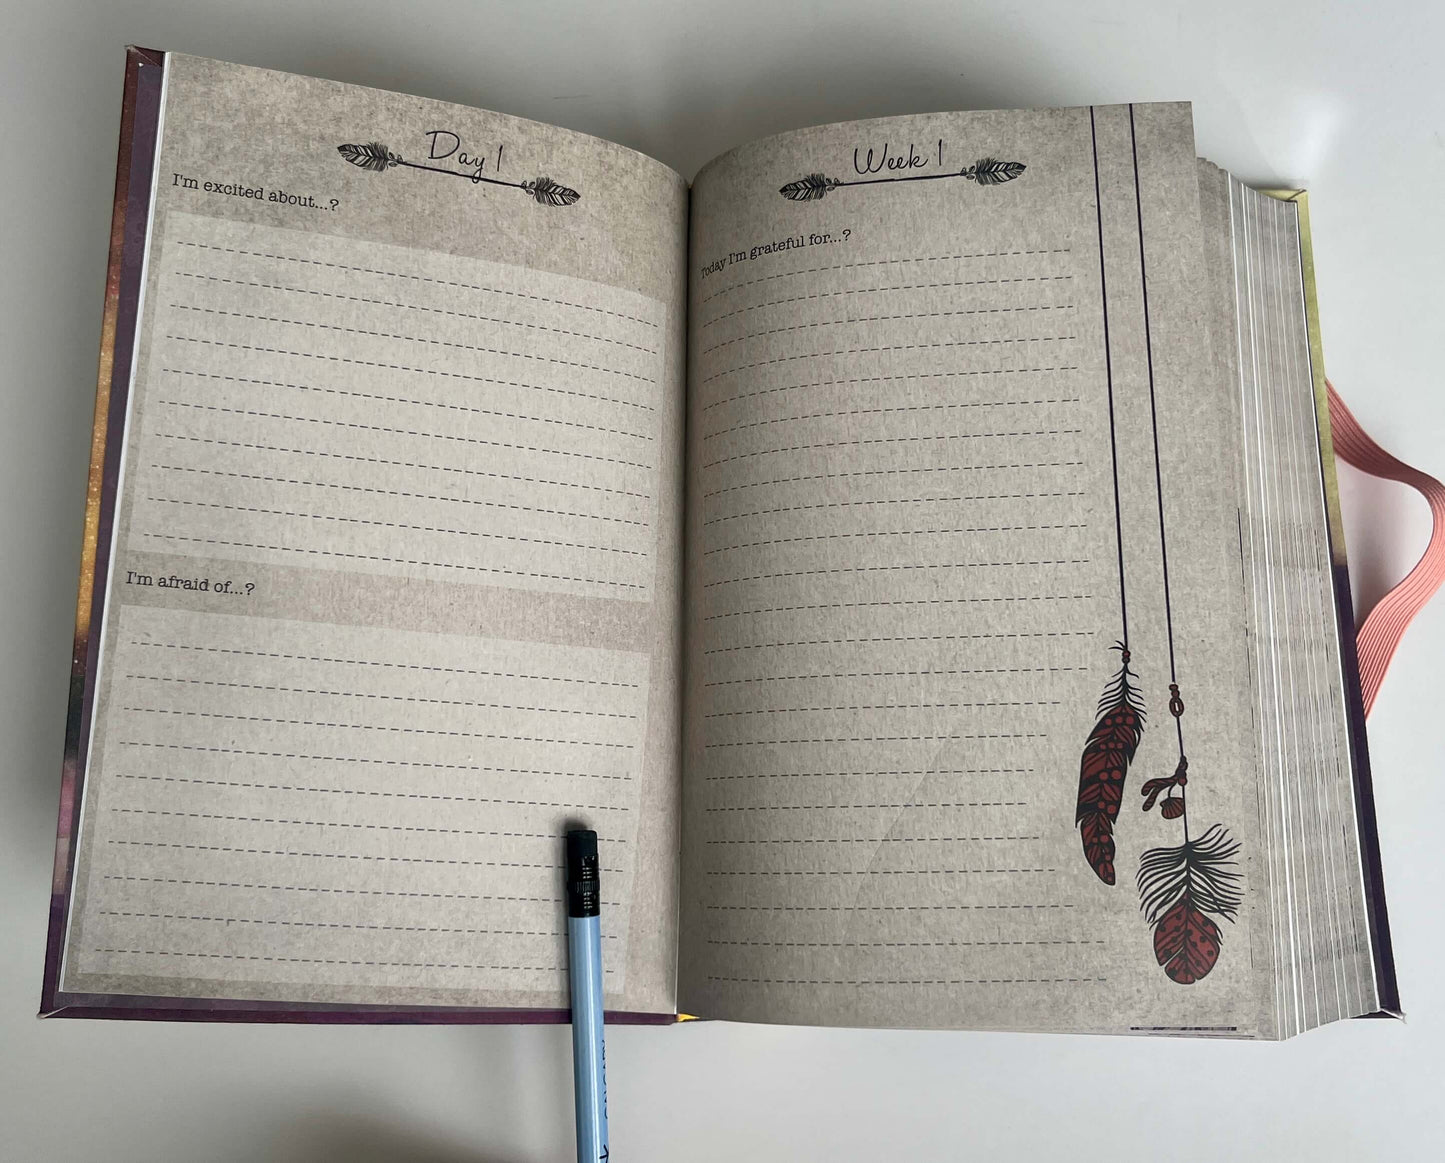 Day 1
I'm excited about...?
I'm afraid of...?
Week 1
Today I'm grateful for...?